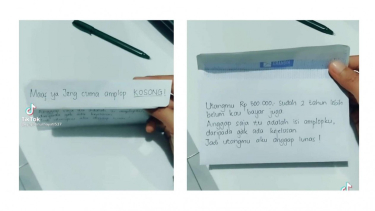 Maaf ya Jeng cuma amplop KOSONG!
TikTok
Utangmu Rp 400.000, sudah 2 tahun lebih
belum kau bayar juga
Anggap saja itu adalah isi amplopku,
daripada gak ada kejelasan.
Jadi utangmu aku anggap lunas!